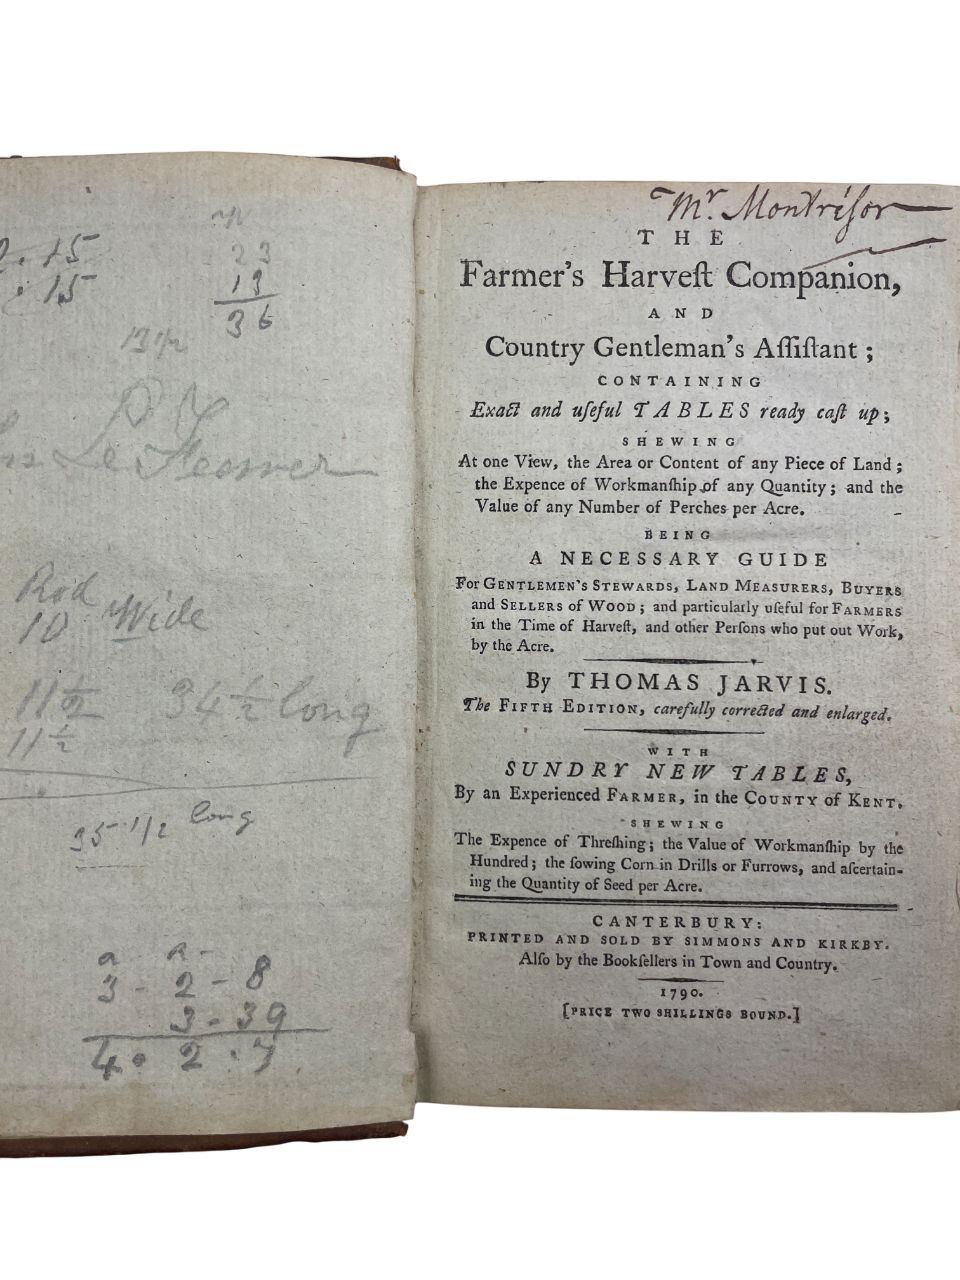 . 15
15
23
13
36
13 1/2
Le Fesner
Rod
10 Wide
11 1/2 34 1/2 long
11 1/2
35 1/2 long
a r
3 - 2 - 8
3 - 39
4 . 2 . 7
Mr. Montrésor
THE
Farmer's Harveſt Companion,
AND
Country Gentleman's Aſſiſtant ;
CONTAINING
Exact and uſeful TABLES ready caſt up;
SHEWING
At one View, the Area or Content of any Piece of Land ;
the Expence of Workmanſhip of any Quantity ; and the
Value of any Number of Perches per Acre.
BEING
A NECESSARY GUIDE
For GENTLEMEN'S STEWARDS, LAND MEASURERS, BUYERS
and SELLERS of WOOD ; and particularly uſeful for FARMERS
in the Time of Harveſt, and other Perſons who put out Work,
by the Acre.
By THOMAS JARVIS.
The FIFTH EDITION, carefully corrected and enlarged.
WITH
SUNDRY NEW TABLES,
By an Experienced FARMER, in the COUNTY of KENT.
SHEWING
The Expence of Threſhing ; the Value of Workmanſhip by the
Hundred ; the ſowing Corn in Drills or Furrows, and aſcertain-
ing the Quantity of Seed per Acre.
CANTERBURY:
PRINTED AND SOLD BY SIMMONS AND KIRKBY.
Alſo by the Bookſellers in Town and Country.
1790.
[PRICE TWO SHILLINGS BOUND.]